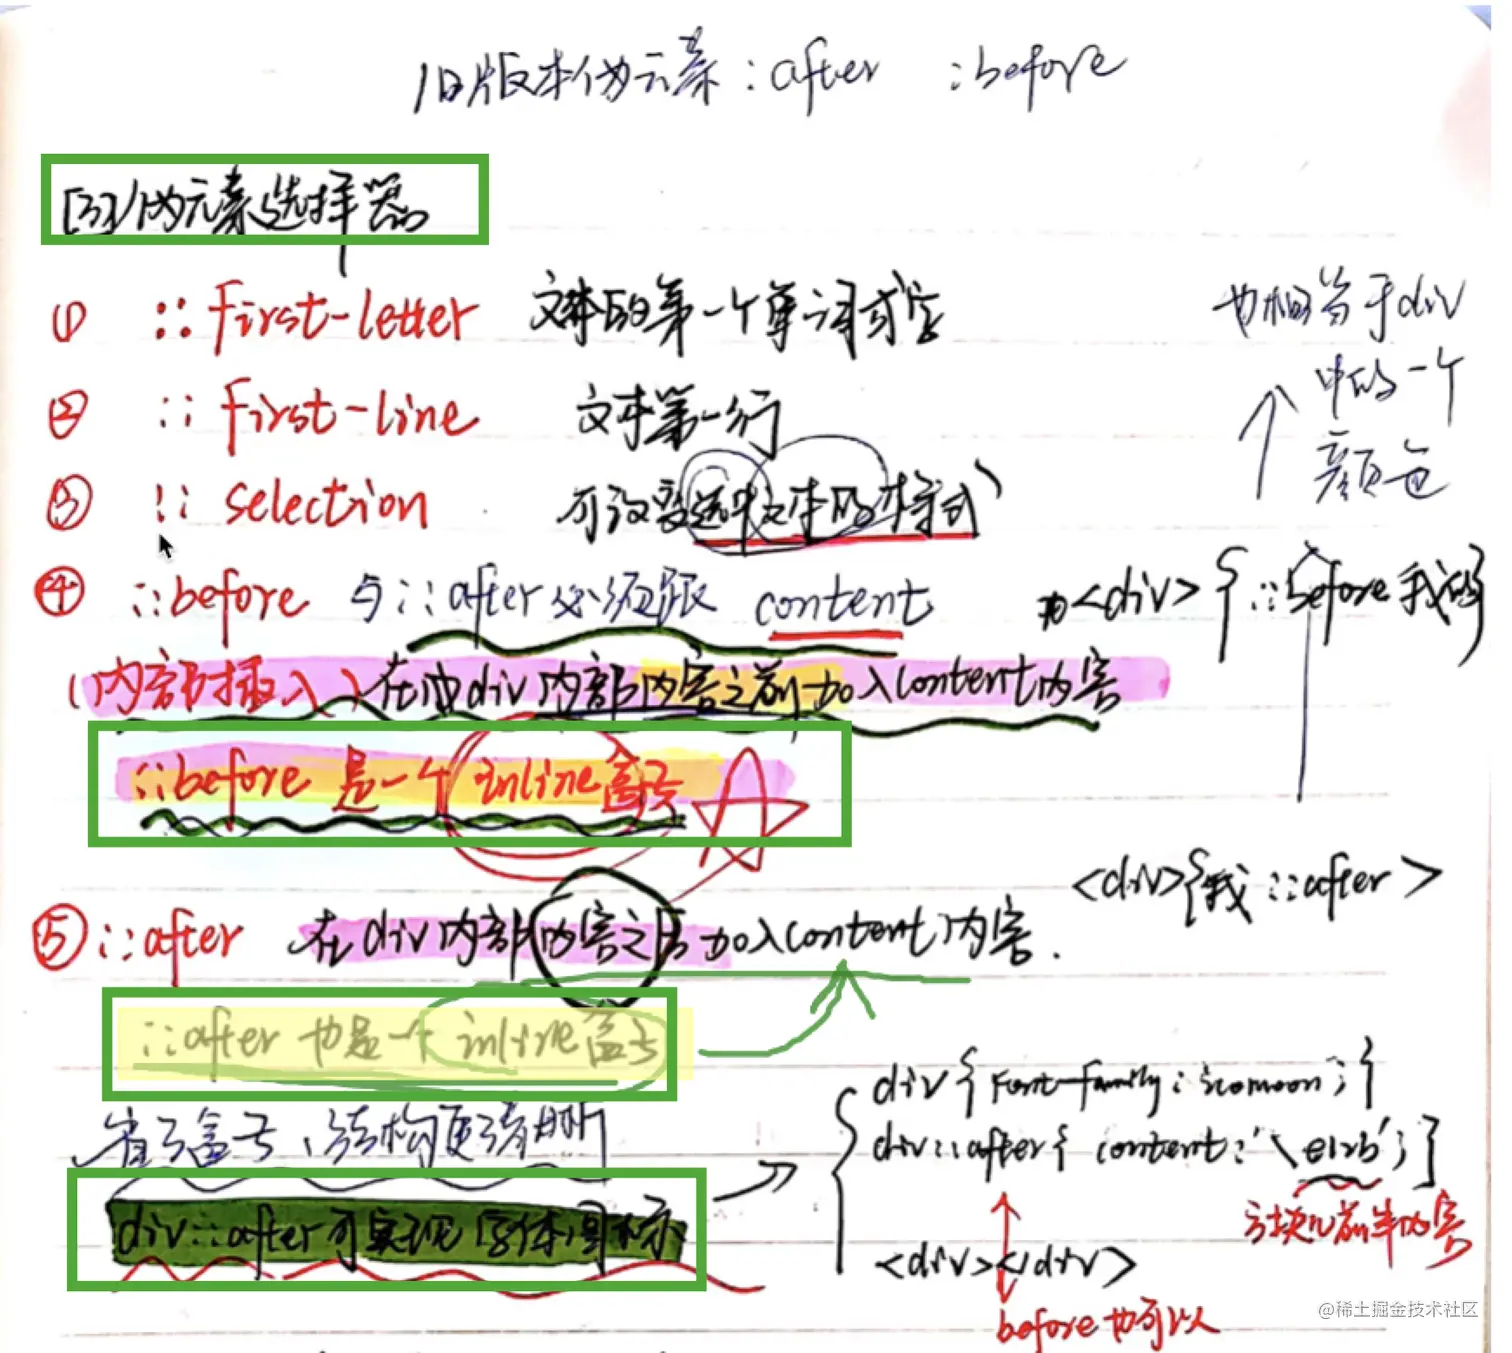 旧版本伪元素 :after :before
[3] 伪元素选择器
① ::first-letter 文本的第一个单词或字
② ::first-line 文本第一行
③ ::selection 可设置选中文本的样式
也相当于div
中的一个
颜色
④ ::before 与::after必须跟 content
<div> { ::before 我的
(内部插入) 在div内部内容之前加入content内容
::before 是一个 inline盒子
<div>{我 ::after >
⑤ ::after 在div内部内容之后加入content内容.
::after 也是一个 inline盒子
省了盒子、结构更清晰
div { font-family: icomoon; }
div::after { content: '\e12b'; }
方块儿前半内容
div::after可实现字体图标
<div></div>
before 也可以
@稀土掘金技术社区